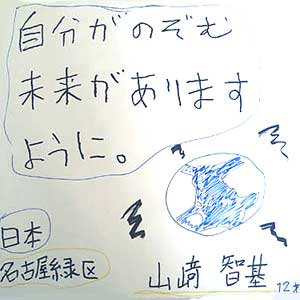 自分がのぞむ
未来があります
ように。
日本
名古屋緑区
山﨑 智基
12才